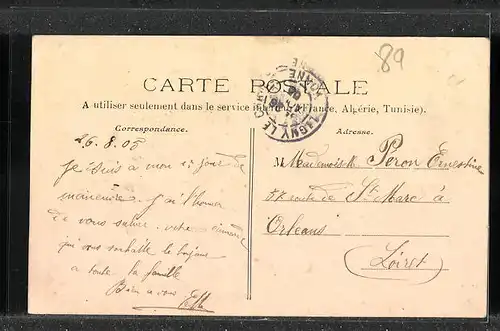 89
CARTE POSTALE
A utiliser seulement dans le service intérieur (France, Algérie, Tunisie).
Correspondance.
Adresse.
26.8.05
Je suis à mon 15 jour de
J'ai l'honneur
de vous saluer. votre
qui vous souhaite le bonjour
a toute la famille
Bien a vous
LAGNY LE
Mademoiselle Péron Ernestine
57 route de St Marc à
Orléans
(Loiret)